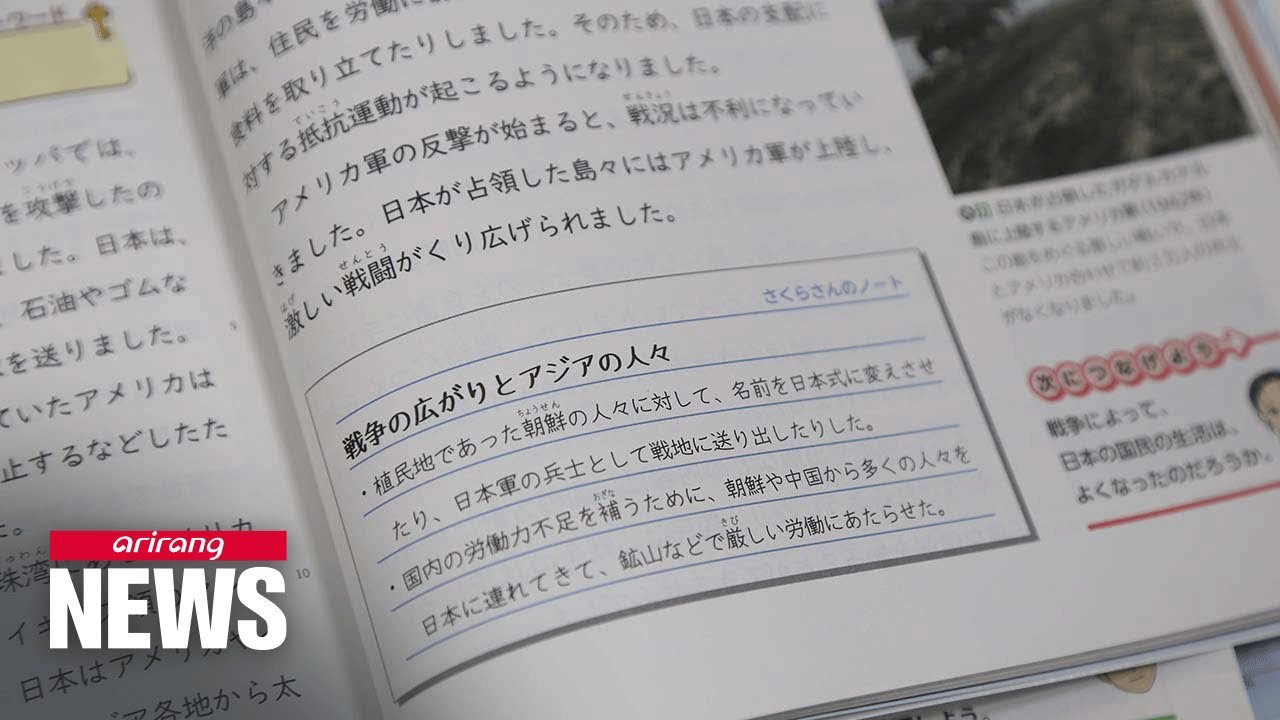 ッパでは、
を攻撃したの
ました。日本は、
石油やゴムな
を送りました。
ていたアメリカは
止するなどしたた
日本はアメリカ
ア各地から太
軍は、住民を労働に
食料を取り立てたりしました。そのため、日本の支配に
対する抵抗運動が起こるようになりました。
アメリカ軍の反撃が始まると、戦況は不利になってい
きました。日本が占領した島々にはアメリカ軍が上陸し、
激しい戦闘がくり広げられました。
さくらさんのノート
戦争の広がりとアジアの人々
・植民地であった朝鮮の人々に対して、名前を日本式に変えさせ
たり、日本軍の兵士として戦地に送り出したりした。
・国内の労働力不足を補うために、朝鮮や中国から多くの人々を
日本に連れてきて、鉱山などで厳しい労働にあたらせた。
10
次につなげよう
戦争によって、
日本の国民の生活は、
よくなったのだろうか。
arirang
NEWS